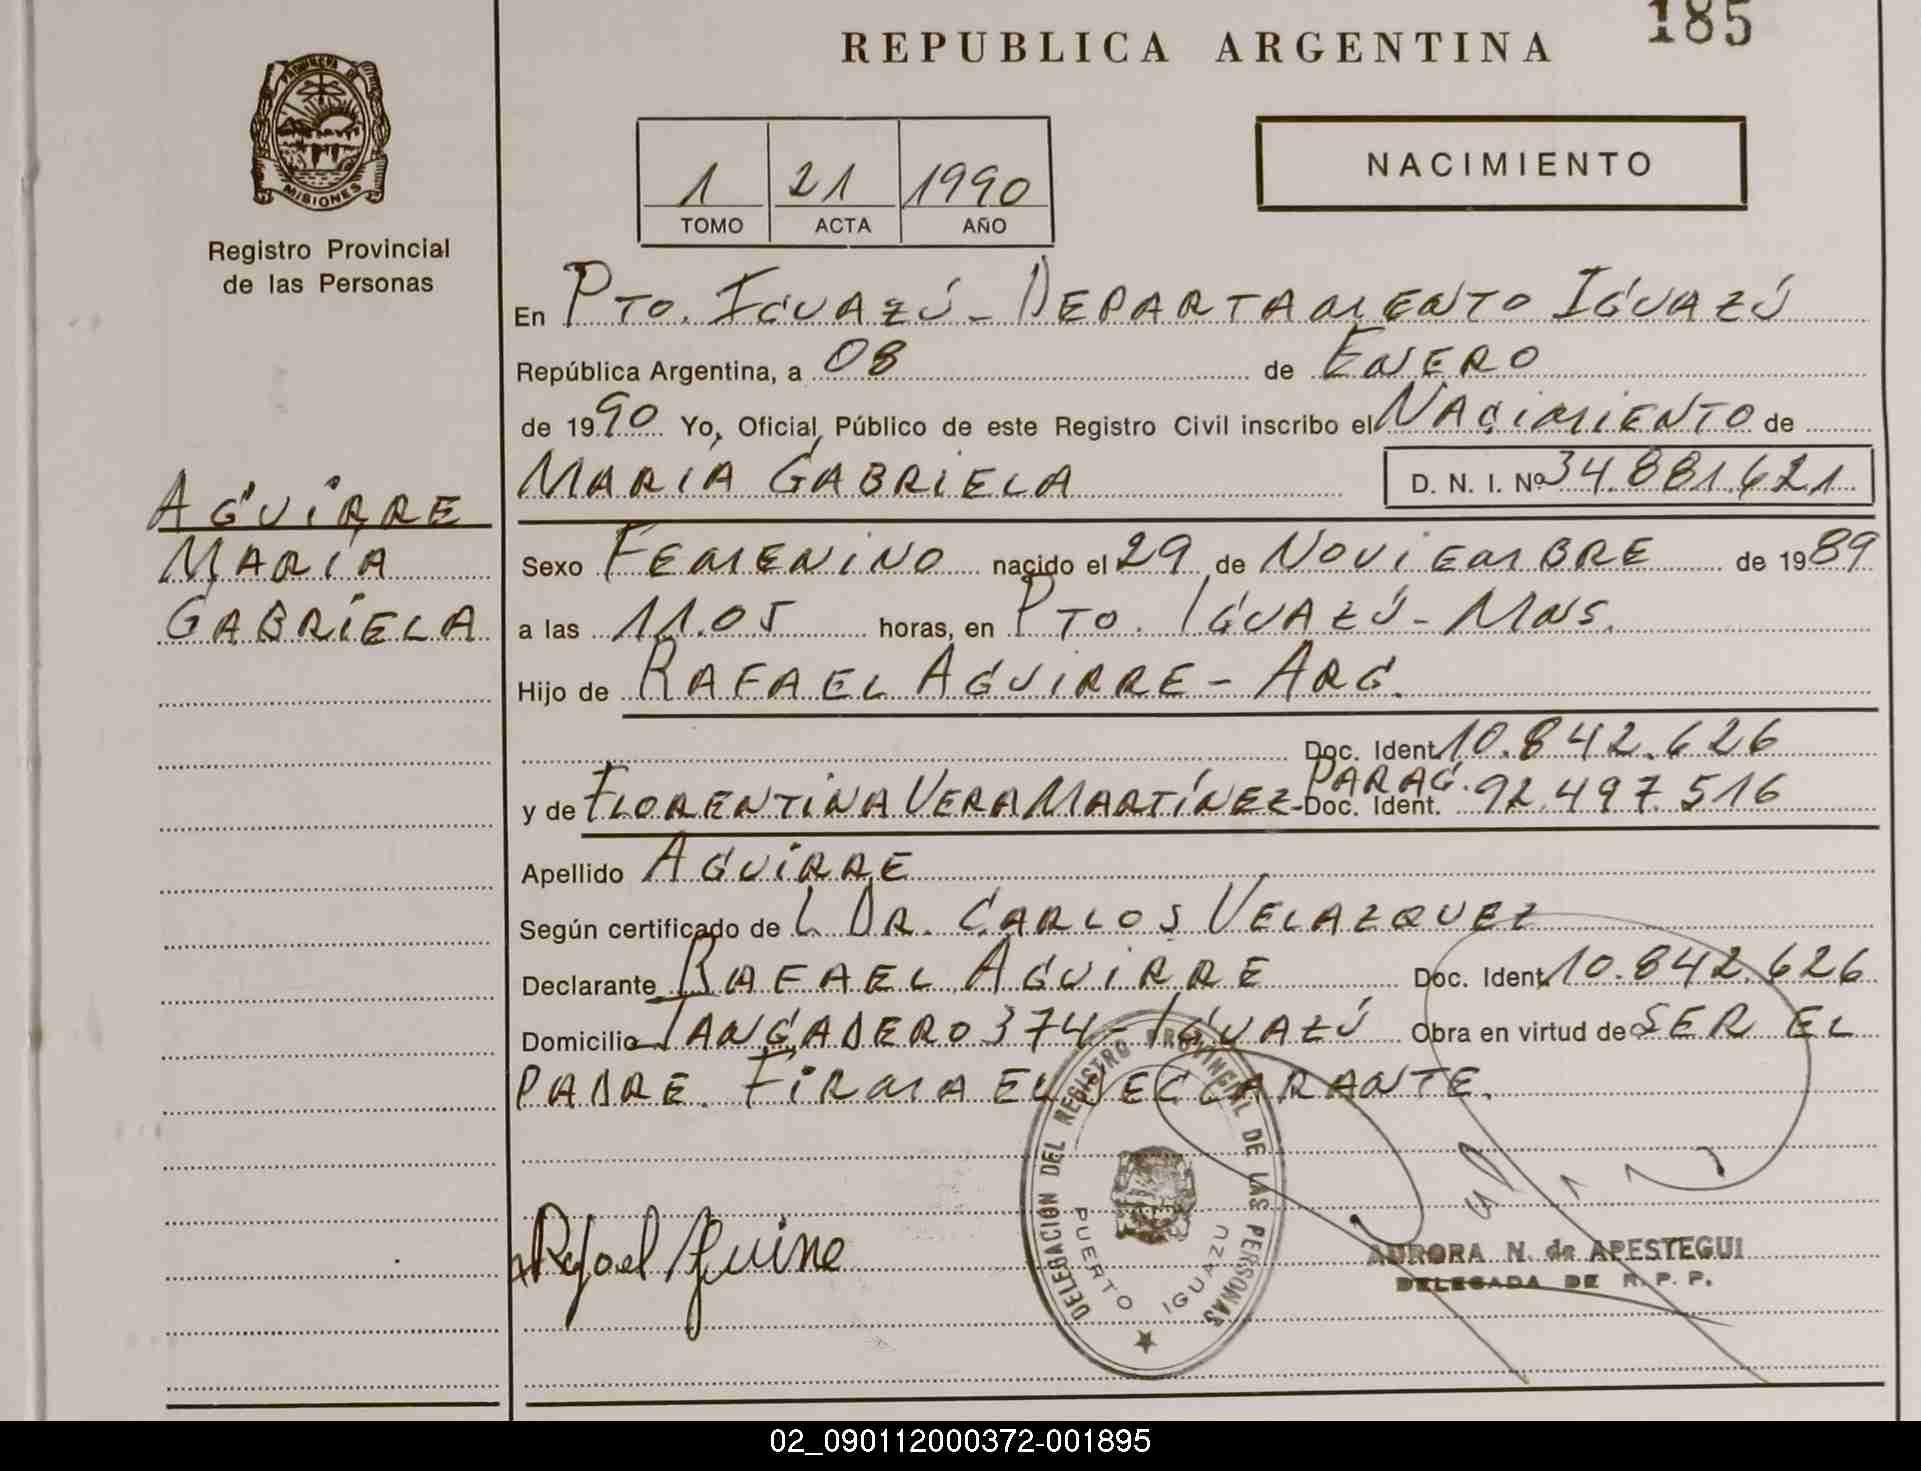 185
REPUBLICA ARGENTINA
PROVINCIA DE
MISIONES
Registro Provincial
de las Personas
1 21 1990
TOMO ACTA AÑO
NACIMIENTO
En PTO. IGUAZÚ - DEPARTAMENTO IGUAZÚ
República Argentina, a 08 de ENERO
de 1990 Yo, Oficial Público de este Registro Civil inscribo el NACIMIENTO de
MARÍA GABRIELA D. N. I. Nº 34.881.621
AGUIRRE
MARÍA
GABRIELA
Sexo FEMENINO nacido el 29 de NOVIEMBRE de 1989
a las 11.05 horas, en PTO. IGUAZÚ - MNS.
Hijo de RAFAEL AGUIRRE - ARG.
Doc. Ident. 10.842.626
y de FLORENTINA VERA MARTÍNEZ - PARAG. Doc. Ident. 92.497.516
Apellido AGUIRRE
Según certificado de L DR. CARLOS VELAZQUEZ
Declarante RAFAEL AGUIRRE Doc. Ident. 10.842.626
Domicilio TANGADERO 374 - IGUAZÚ Obra en virtud de SER EL
PADRE. FIRMA EL DECLARANTE.
DELEGACION DEL REGISTRO PROVINCIAL DE LAS PERSONAS
PUERTO IGUAZU
Rafael Aguirre
AURORA N. de APESTEGUI
DELEGADA DE R. P. P.
02_090112000372-001895